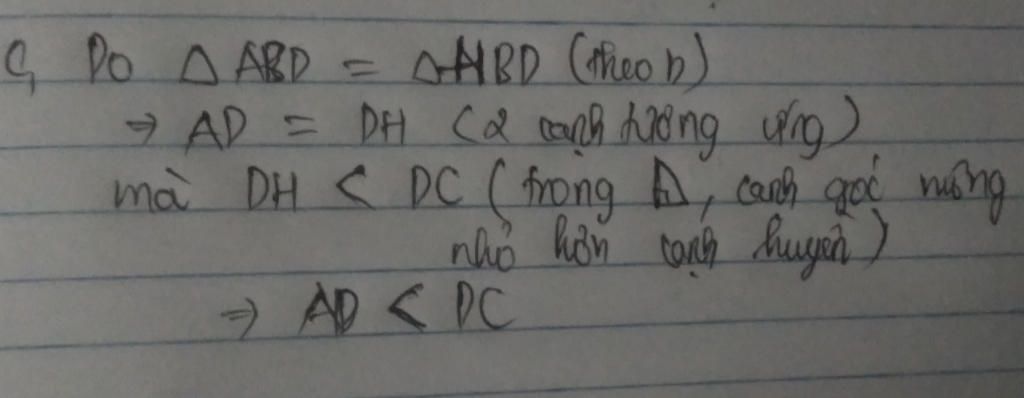 c, Do △ ABD = △ HBD (theo b)
⇒ AD = DH (2 cạnh tương ứng)
mà DH < DC (trong ⊿, cạnh góc vuông
nhỏ hơn cạnh huyền)
⇒ AD < DC